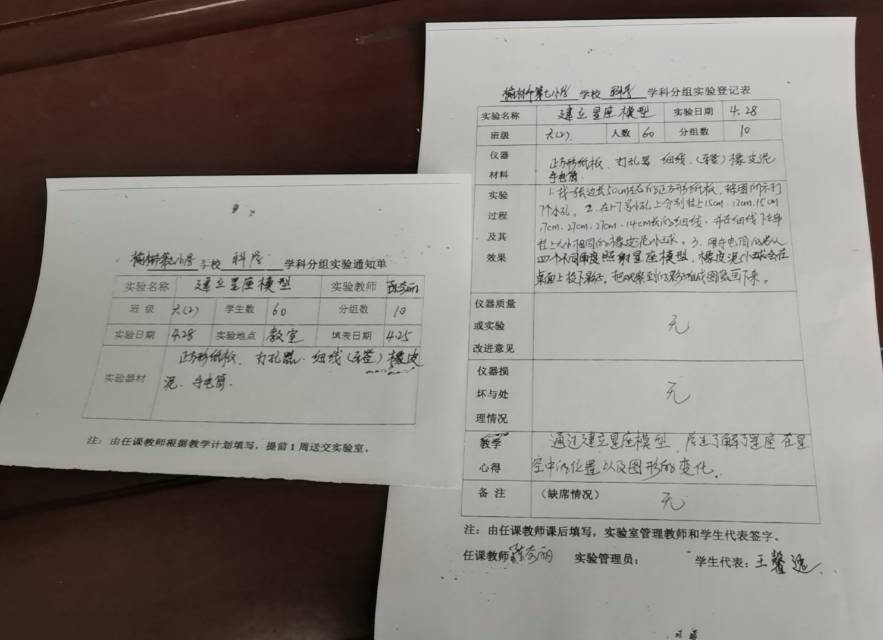 第七小学 学校 科学 学科分组实验通知单
实验名称 建立星座模型 实验教师
班 级 六(2) 学生数 60 分组数 10
实验日期 4.28 实验地点 教室 填表日期 4.25
实验器材 正方形纸板、打孔器、细线(吸管)橡皮
泥、手电筒.
注：由任课教师根据教学计划填写，提前1周送交实验室。
第七小学 学校 科学 学科分组实验登记表
实验名称 建立星座模型 实验日期 4.28
班级 六(2). 人数 60 分组数 10
仪器材料 正方形纸板、打孔器、细线、(吸管)橡皮泥
手电筒.
实验过程及其效果 1.找一张边长50cm左右的正方形纸板，按图所示打
7个小孔。2.在1-7号小孔上分别挂上15cm、12cm、15cm
17cm、27cm、27cm、14cm长的细线，并在细线下端
挂上大小相同的橡皮泥小球。3、用手电筒的光从
四个不同角度照射星座模型，橡皮泥小球会在
桌面上投下影子。把观察到的影子组成图案画下来。
仪器质量或实验改进意见 无
仪器损坏与处理情况 无
教学心得 通过建立星座模型，学生了解了星座在星
空中的位置以及图形的变化。
备 注 (缺席情况) 无
注：由任课教师课后填写，实验室管理教师和学生代表签字。
任课教师 实验管理员： 学生代表：王